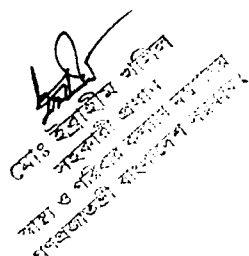 মোঃ ইব্রাহিম খলিল
সহকারী প্রধান
স্বাস্থ্য ও পরিবার কল্যাণ মন্ত্রণালয়
গণপ্রজাতন্ত্রী বাংলাদেশ সরকার।